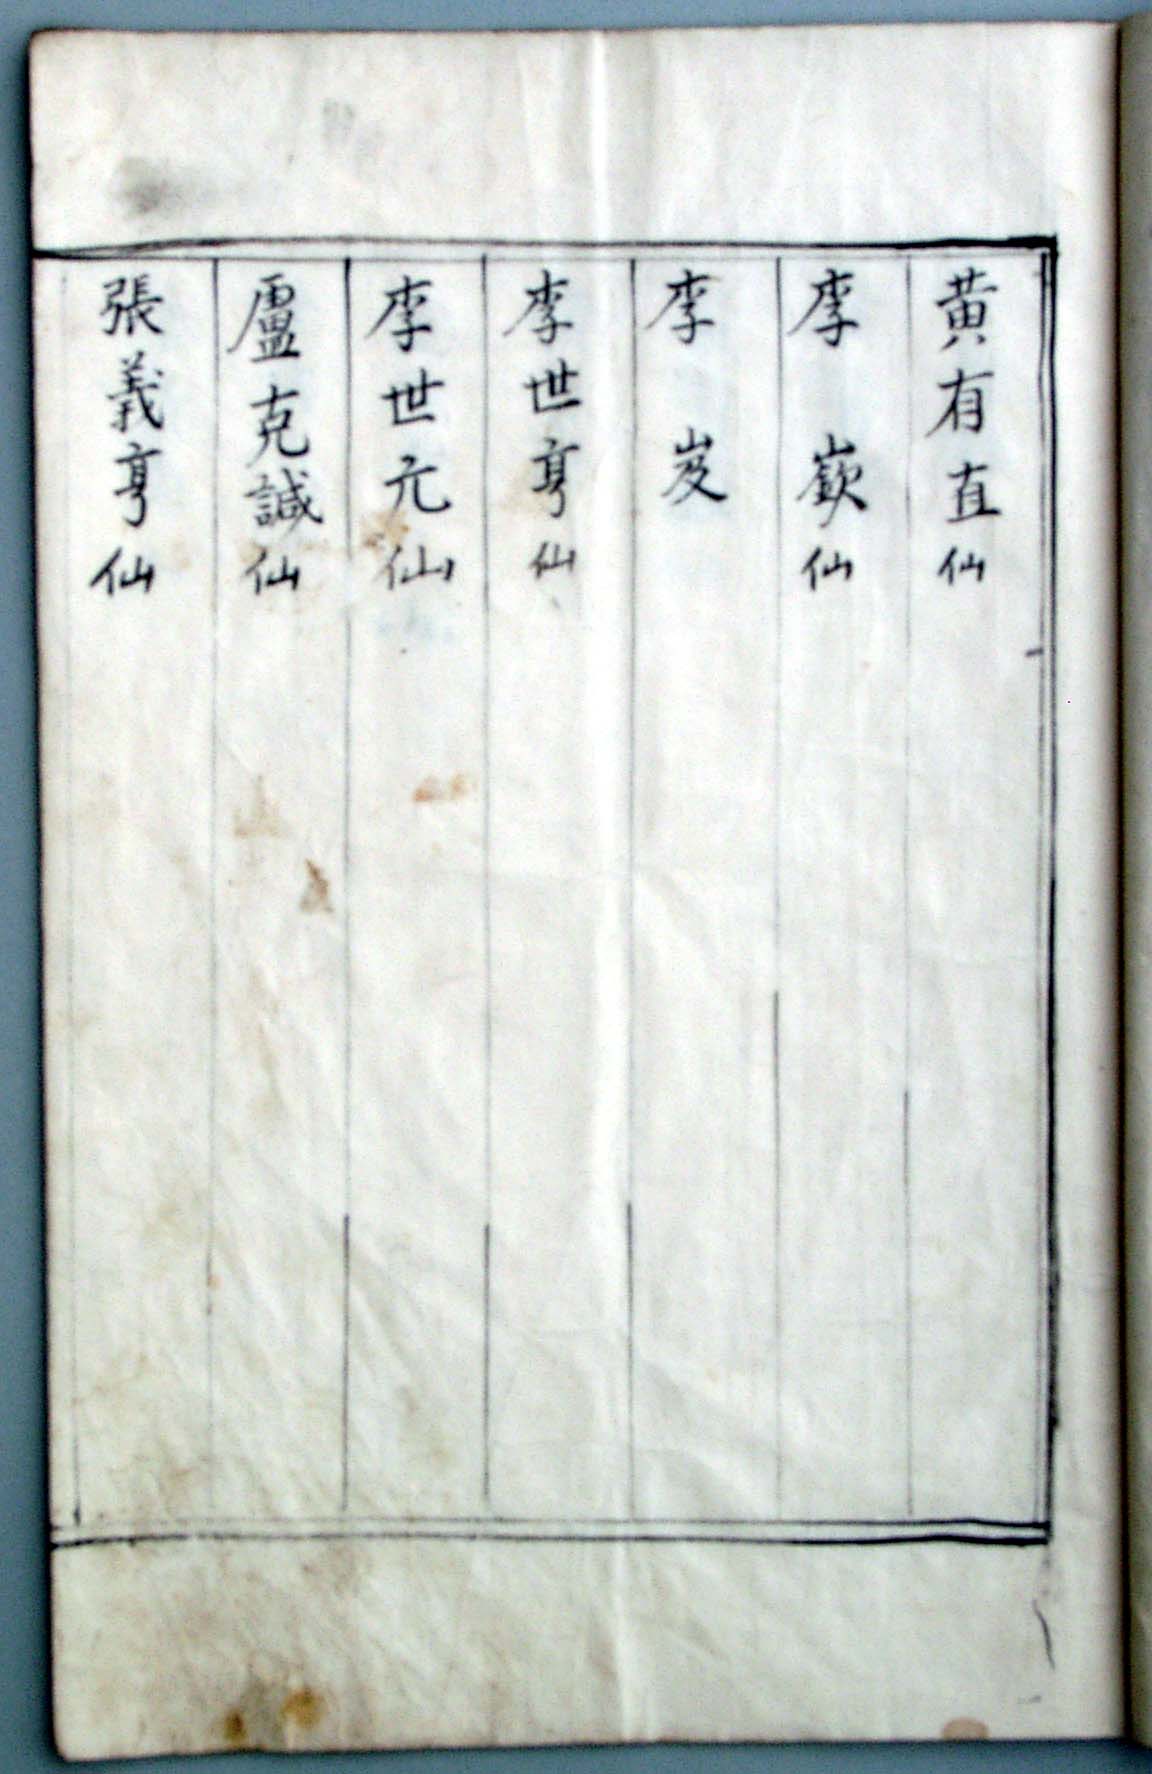 黄有直仙
李嶔仙
李岌
李世亨仙
李世元仙
盧克誠仙
張義亨仙